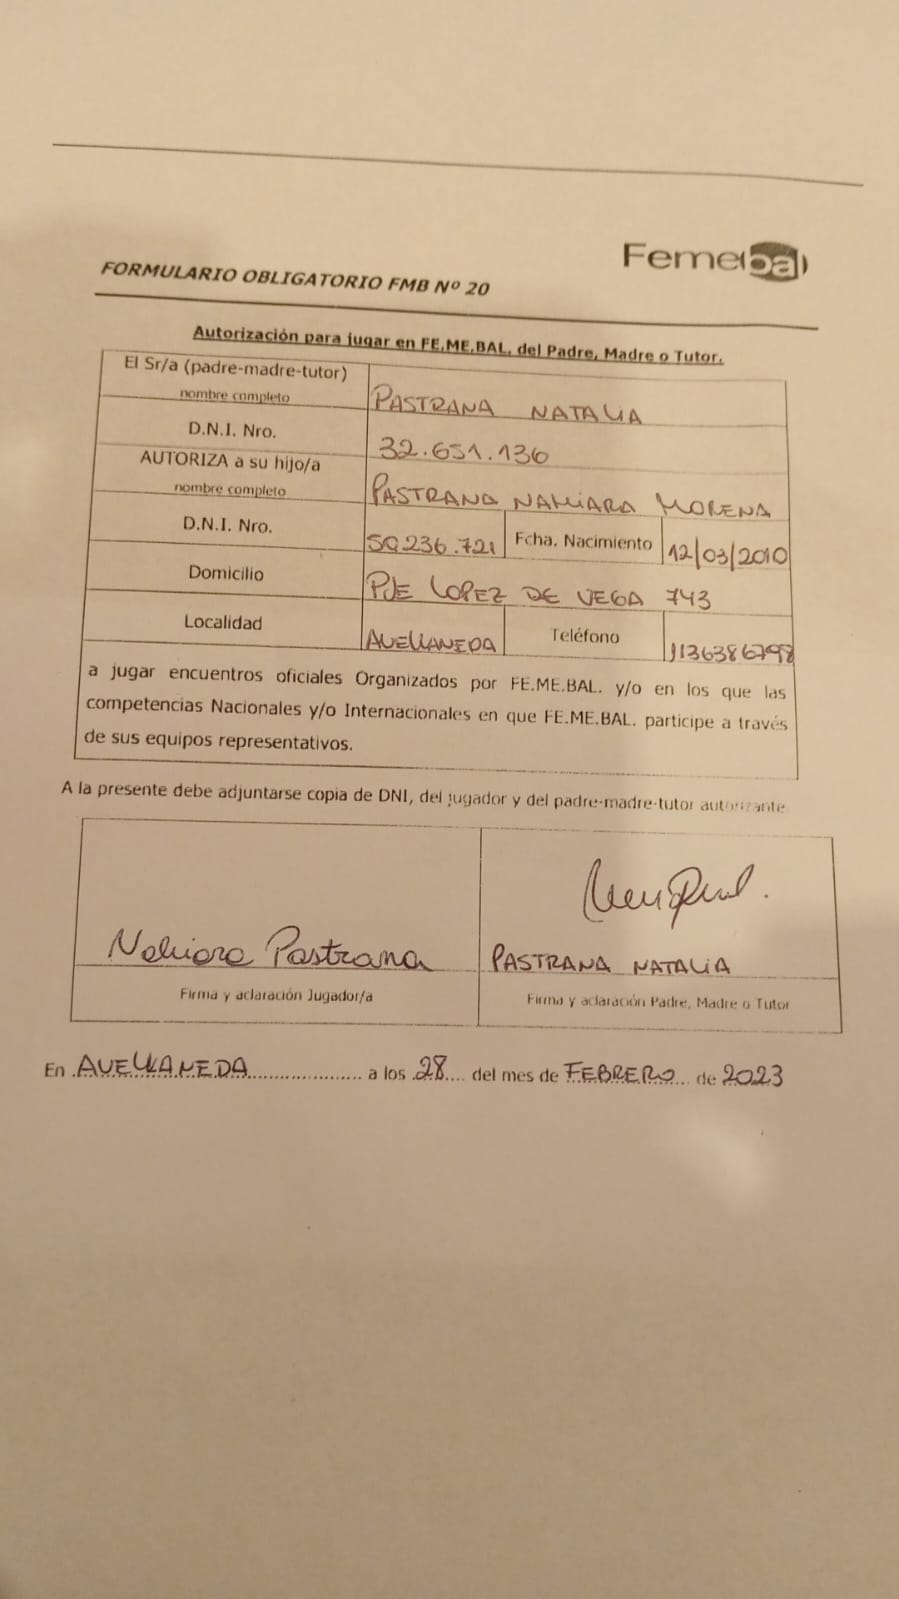 Femebal
FORMULARIO OBLIGATORIO FMB Nº 20
Autorización para jugar en FE.ME.BAL. del Padre, Madre o Tutor.
El Sr/a (padre-madre-tutor)
nombre completo
PASTRANA NATALIA
D.N.I. Nro.
32.651.136
AUTORIZA a su hijo/a
nombre completo
PASTRANA NAHIARA MORENA
D.N.I. Nro.
50.236.721
Fcha. Nacimiento
12/03/2010
Domicilio
PJE LOPEZ DE VEGA 743
Localidad
AVELLANEDA
Teléfono
1136386798
a jugar encuentros oficiales Organizados por FE.ME.BAL. y/o en los que las
competencias Nacionales y/o Internacionales en que FE.ME.BAL. participe a través
de sus equipos representativos.
A la presente debe adjuntarse copia de DNI, del jugador y del padre-madre-tutor autorizante
Nahiara Pastrana
PASTRANA NATALIA
Firma y aclaración Jugador/a
Firma y aclaración Padre, Madre o Tutor
En AVELLANEDA a los 28 del mes de FEBRERO de 2023